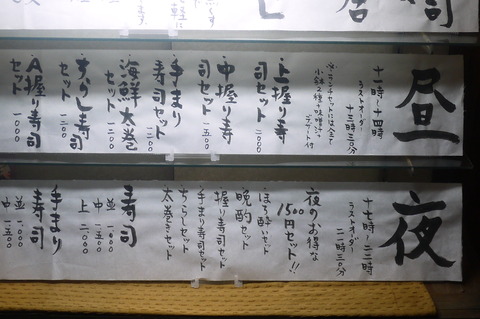 昼
十一時〜十四時
ラストオーダー
十三時三〇分
※ランチセットには全て
小鉢2種+味噌汁+
デザート付
・上握り寿
司セット 二〇〇〇
・中握り寿
司セット 一五〇〇
・手まり
寿司セット 一二〇〇
・海鮮太巻
セット 一二〇〇
・ちらし寿司
セット 一二〇〇
・A握り寿司
セット 一〇〇〇
夜
十七時〜二二時
ラストオーダー
二一時三〇分
夜のお得な
1500円セット!!
・ほろ酔いセット
・晩酌セット
・握り寿司セット
・手まり寿司セット
・ちらしセット
・太巻きセット
寿司
並 一〇〇〇
中 一五〇〇
上 二〇〇〇
手まり
寿司
並 一〇〇〇
中 一五〇〇